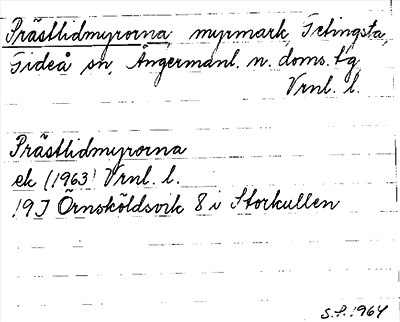 Prästlidmyrorna, myrmark, Tetingsta,
Gideå sn, Ångermanl. n. doms. tg
Vrnl. l.
Prästlidmyrorna
ek (1963) Vrnl. l.
19J Örnsköldsvik 8 i Storkullen
S.F. 1964